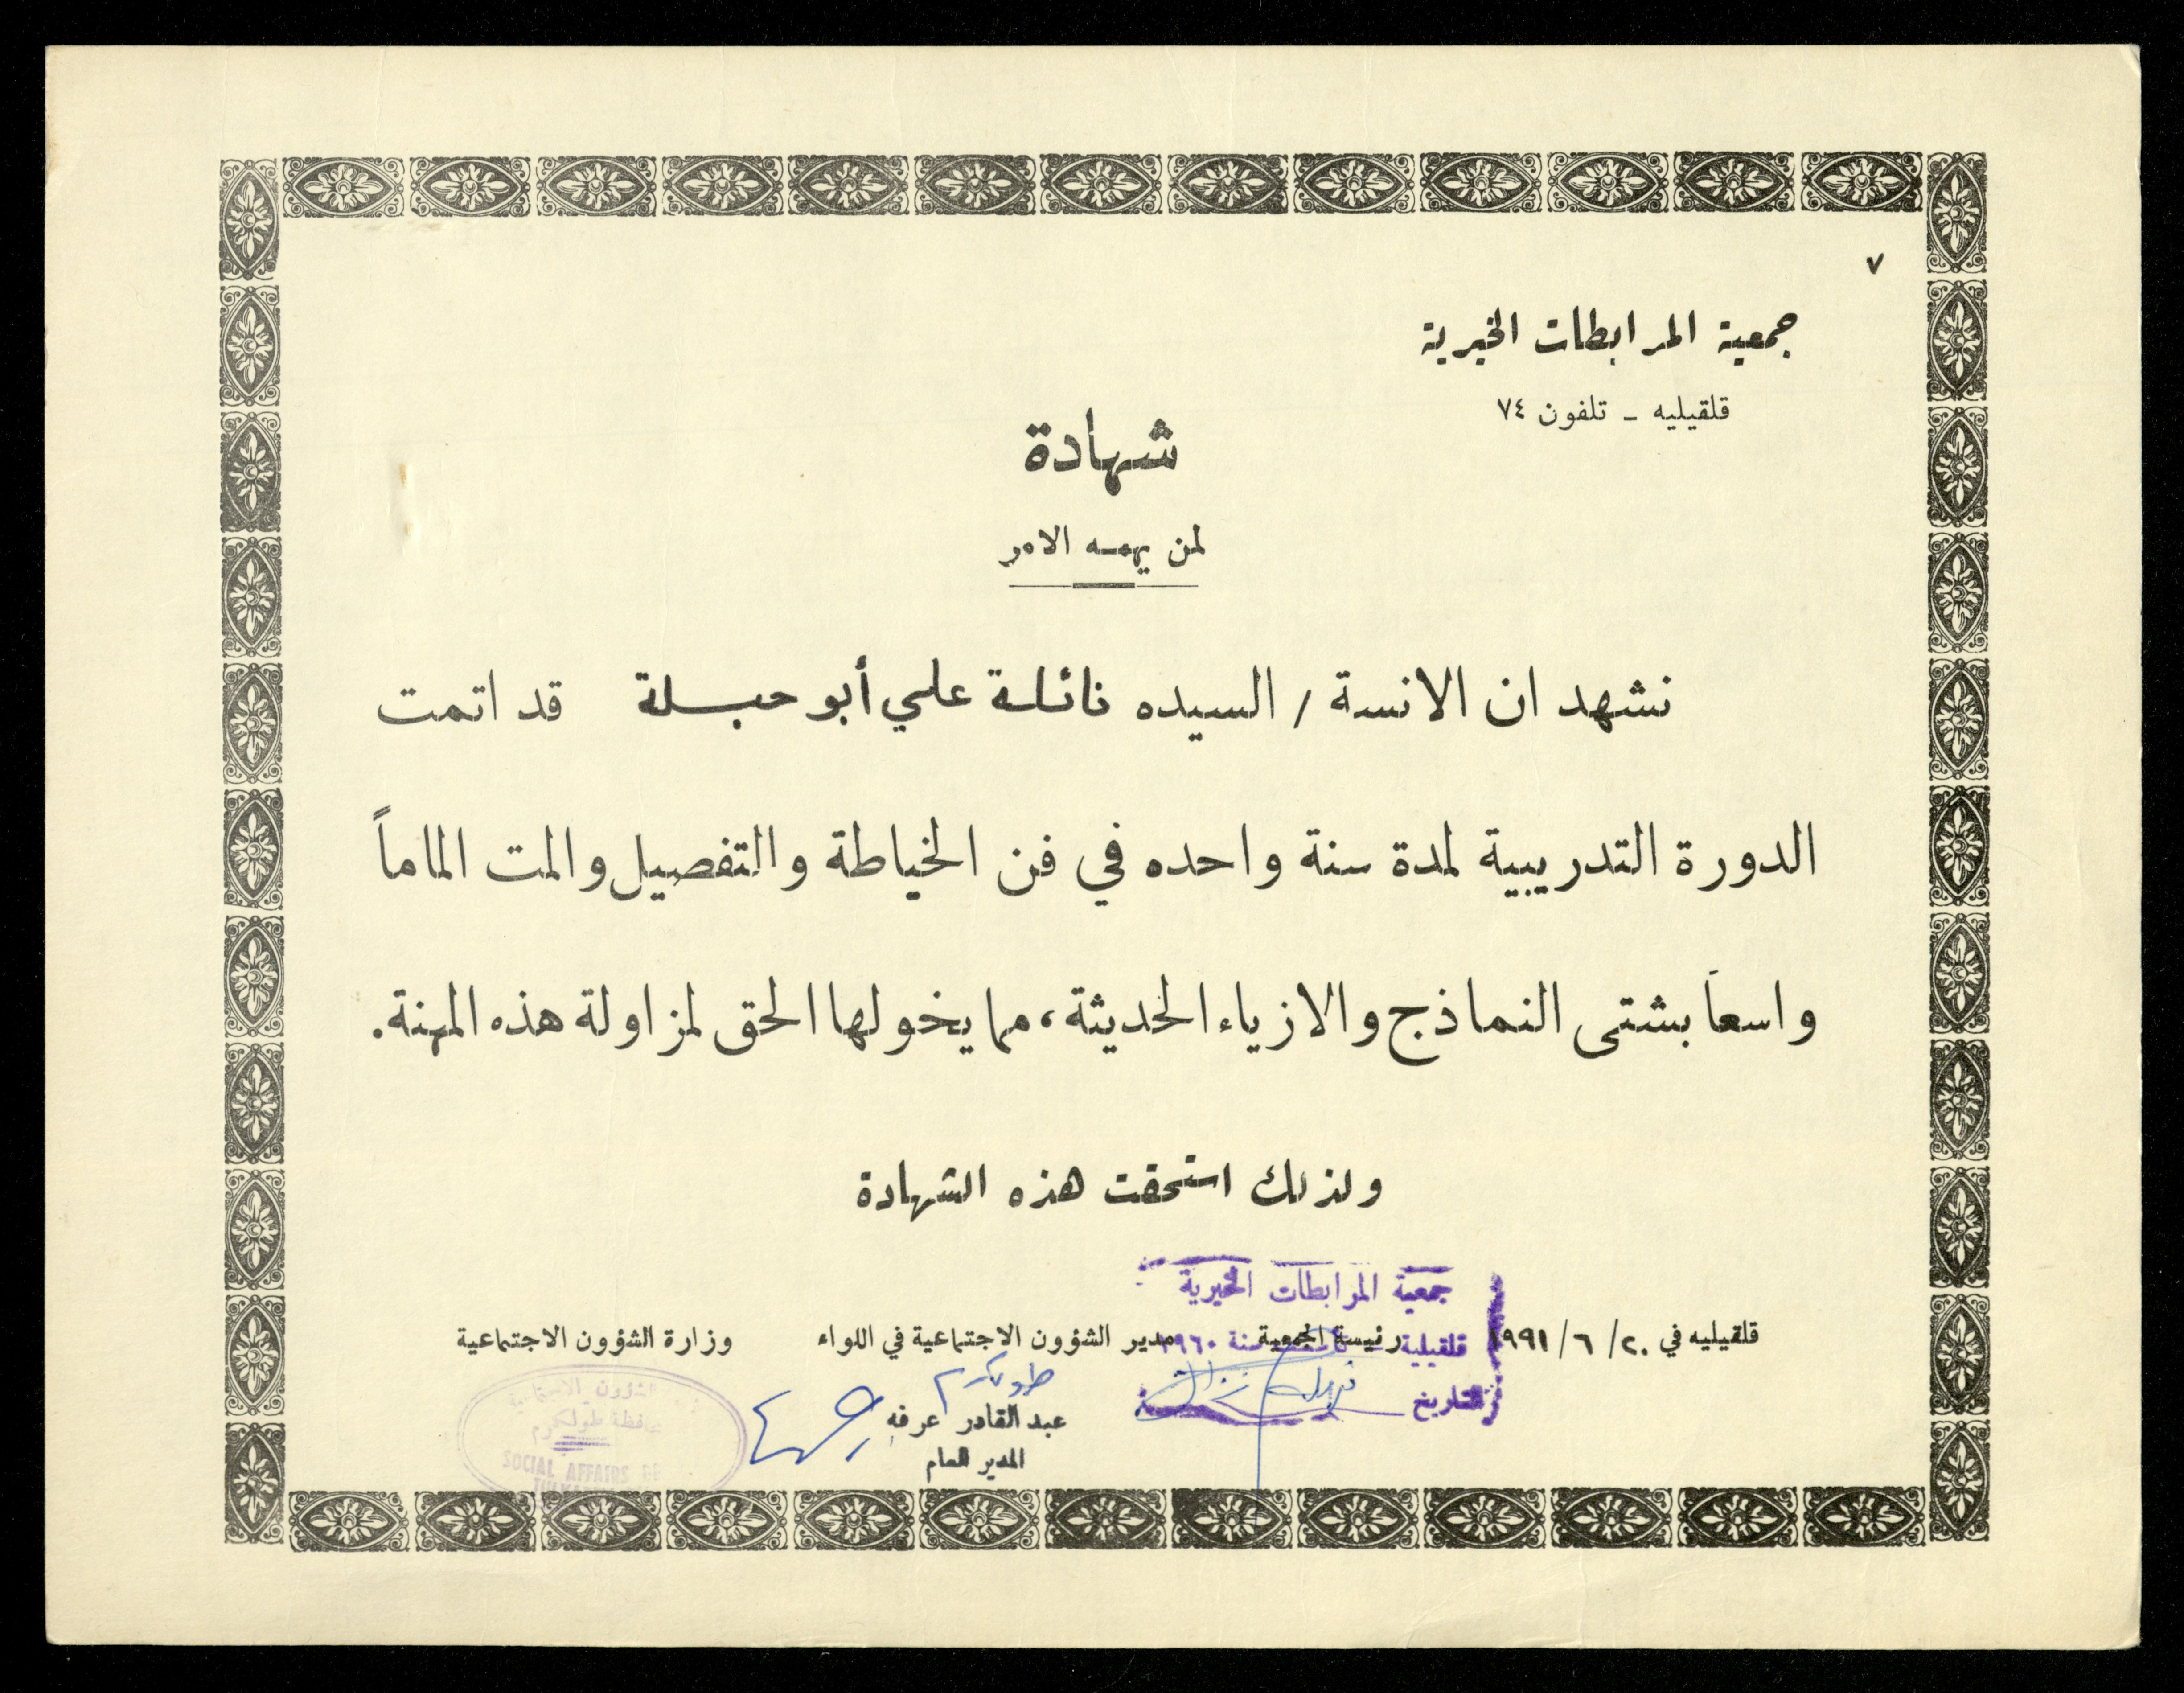 ٧
جمعية المرابطات الخيرية
قلقيليه - تلفون ٧٤
شهادة
لمن يهمه الامر
نشهد ان الانسة / السيده نائلة علي أبو حبلة قد اتمت
الدورة التدريبية لمدة سنة واحده في فن الخياطة والتفصيل والمت الماماً
واسعاً بشتى النماذج والازياء الحديثة، مما يخولها الحق لمزاولة هذه المهنة.
ولذلك استحقت هذه الشهادة
جمعية المرابطات الخيرية
قلقيلية سنة ١٩٦٠
التاريخ
قلقيليه في ٢٠ / ٦ / ١٩٩١
رئيسة الجمعية
مدير الشؤون الاجتماعية في اللواء
وزارة الشؤون الاجتماعية
طولكرم
عبد القادر عرفه
المدير العام
الشؤون الاجتماعية
محافظة طولكرم
SOCIAL AFFAIRS